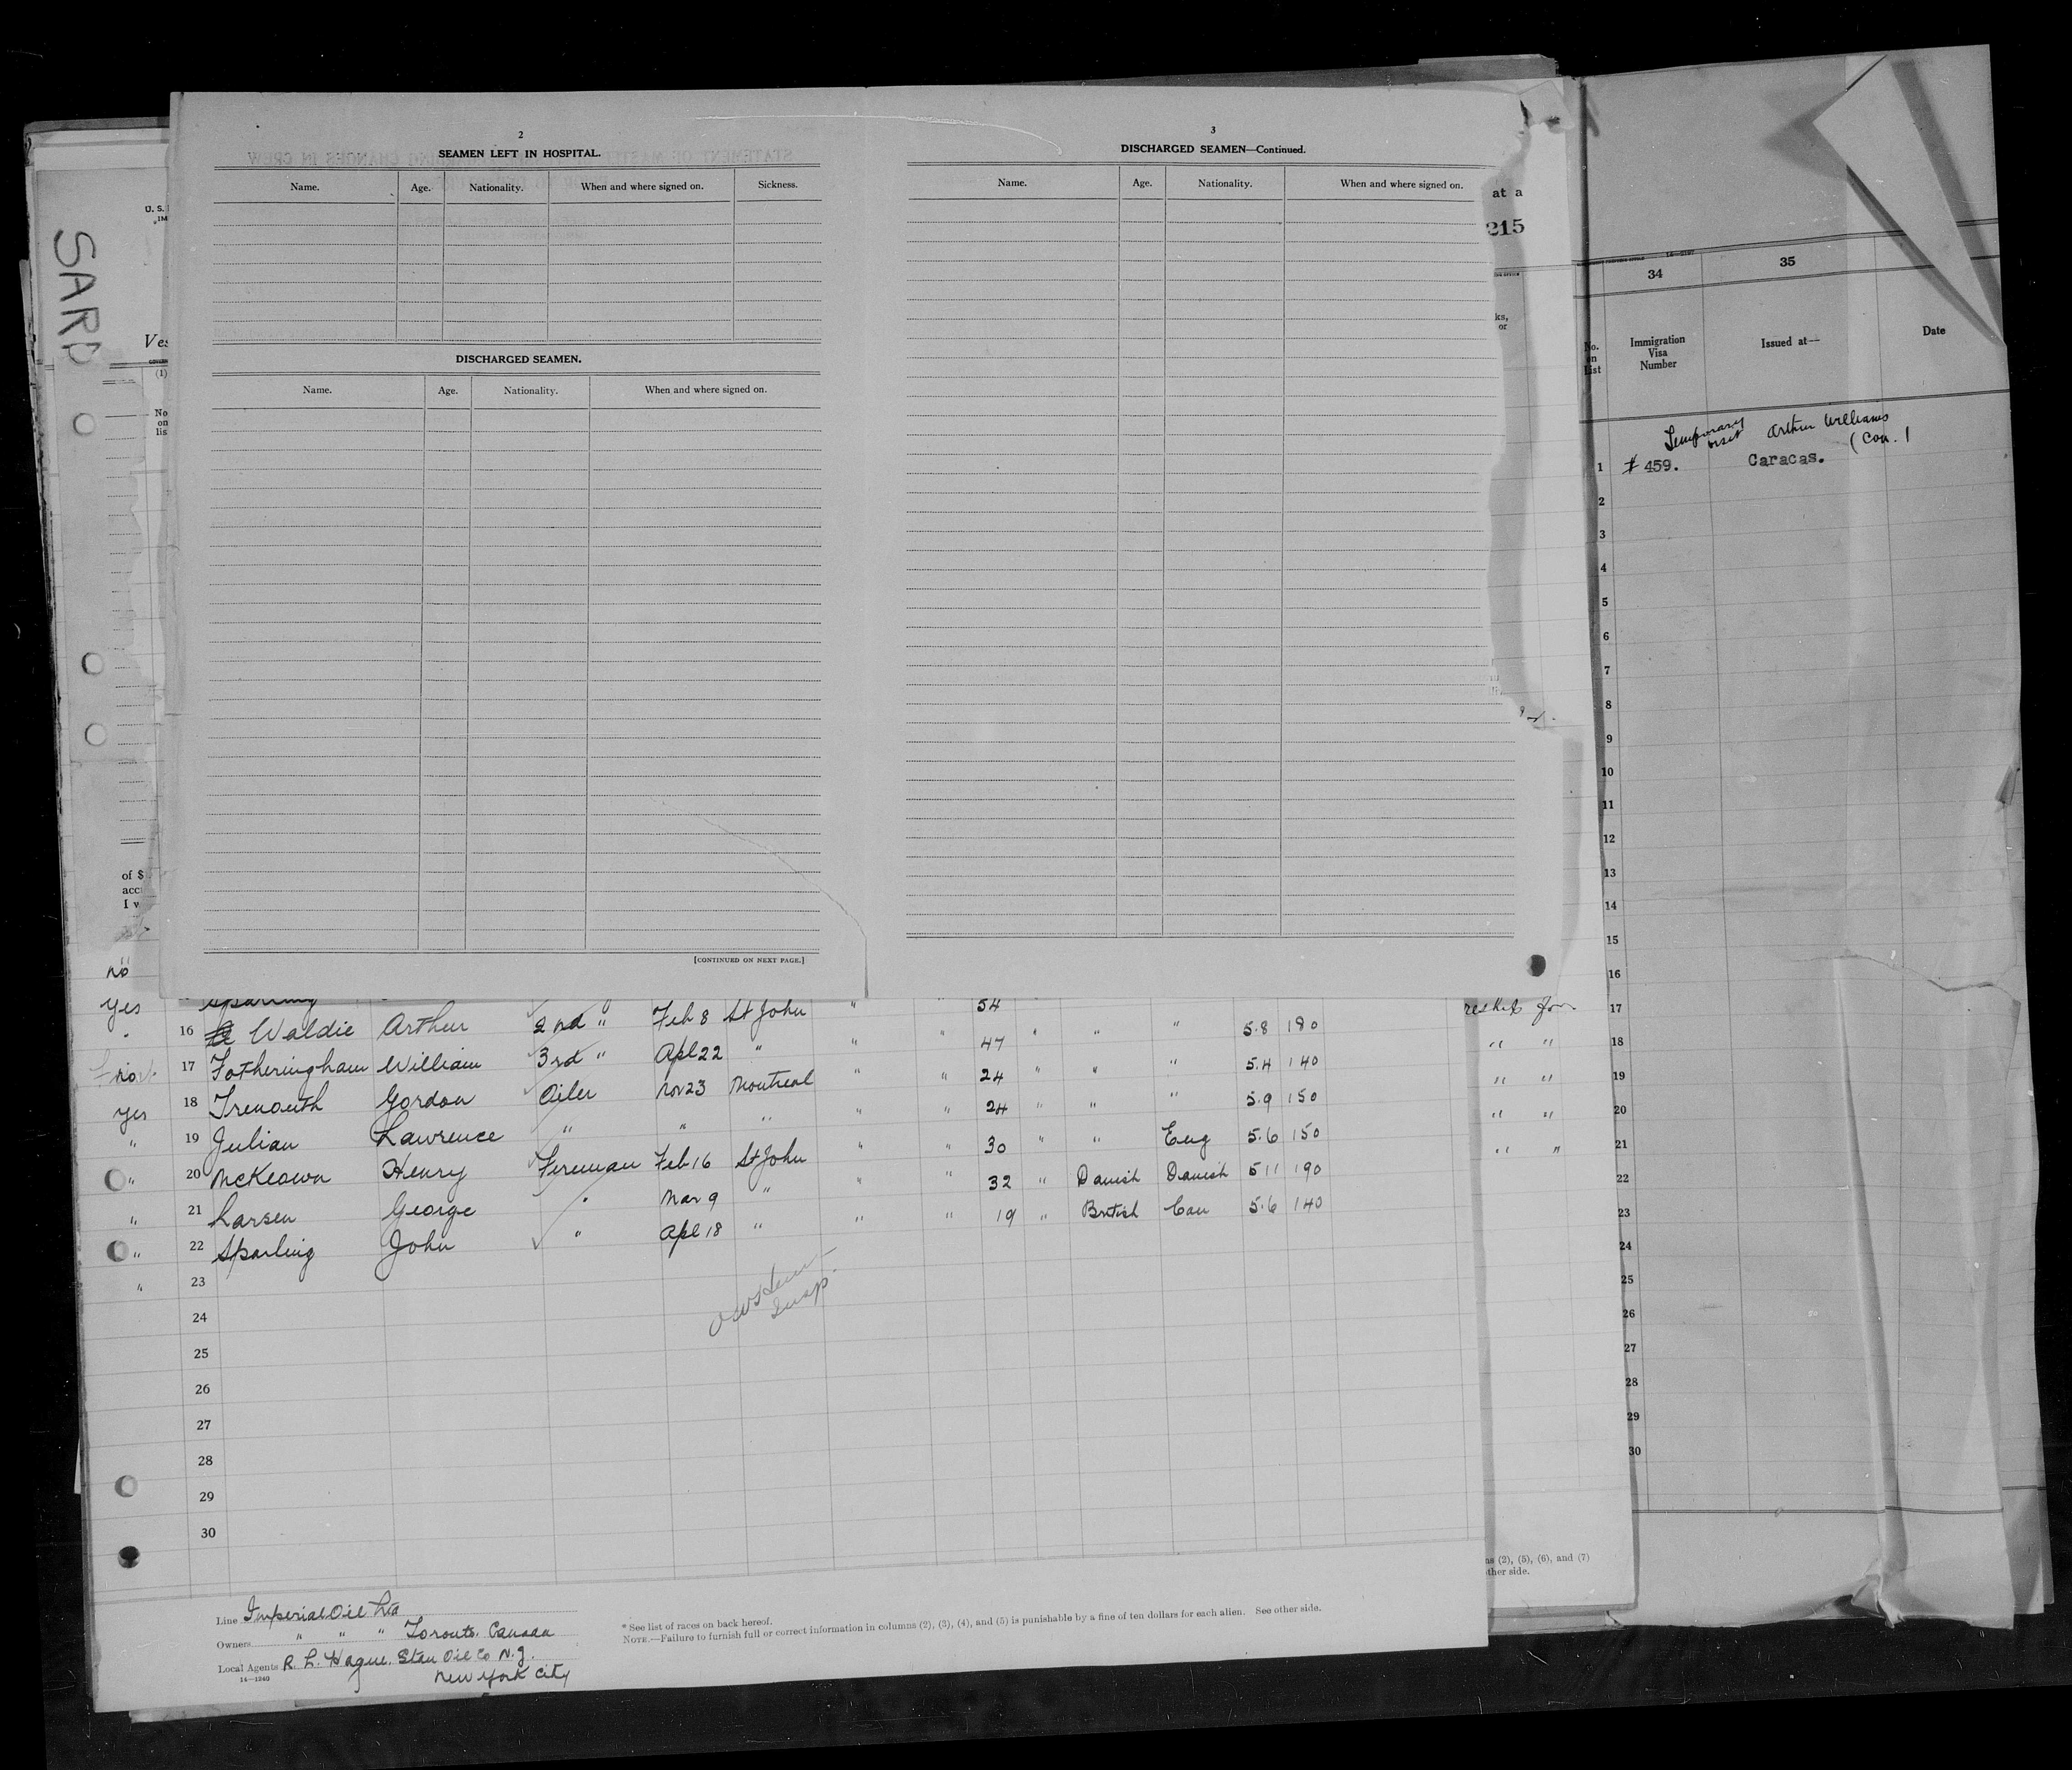 SARD
U. S.
Ves
(1)
No
on
lis
of $
acc
I v
2
SEAMEN LEFT IN HOSPITAL.
Name. Age. Nationality. When and where signed on. Sickness.
DISCHARGED SEAMEN.
Name. Age. Nationality. When and where signed on.
[CONTINUED ON NEXT PAGE.]
3
DISCHARGED SEAMEN—Continued.
Name. Age. Nationality. When and where signed on.
at a
215
ks,
or
34 35
No. on List Immigration Visa Number Issued at— Date
Temporary visit Arthur Williams
(Con.)
1 # 459. Caracas.
2
3
4
5
6
7
8
9
10
11
12
13
14
15
16
17
18
19
20
21
22
23
24
25
26
27
28
29
30
no
yes Sparling 54
" 16 Waldie Arthur 2nd " Feb 8 St John " " 47 " " " 5.8 180
no 17 Fotheringham William 3rd " Apl 22 " " " 24 " " " 5.4 140
yes 18 Tremouth Gordon Oiler Nov 23 Montreal " " 24 " " " 5.9 150
" 19 Julian Lawrence " " " " " 30 " " Eng 5.6 150
" 20 McKeown Henry Fireman Feb 16 St John " " 32 " Danish Danish 5 11 190
" 21 Larsen George " Mar 9 " " " 19 " British Can 5.6 140
" 22 Sparling John " Apl 18 "
" 23
24
25
26
27
28
29
30
" "
" "
" "
" "
Line Imperial Oil Ltd
Owners " " " Toronto Canada
Local Agents R. L. Hague. Stan Oil Co N.J.
14—1240 New York City
* See list of races on back hereof.
NOTE.—Failure to furnish full or correct information in columns (2), (3), (4), and (5) is punishable by a fine of ten dollars for each alien. See other side.
ns (2), (5), (6), and (7)
other side.